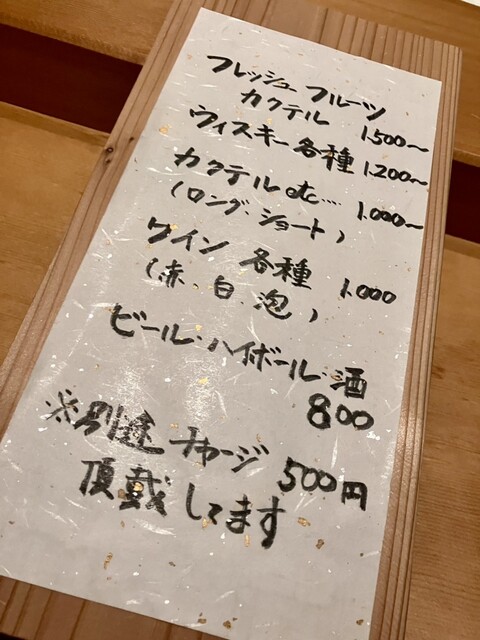 フレッシュフルーツ
カクテル 1.500～
ウィスキー各種 1.200～
カクテル etc… 1.000～
(ロング、ショート)
ワイン 各種 1.000
(赤、白、泡)
ビール・ハイボール・酒
800
※別途チャージ 500円
頂戴してます